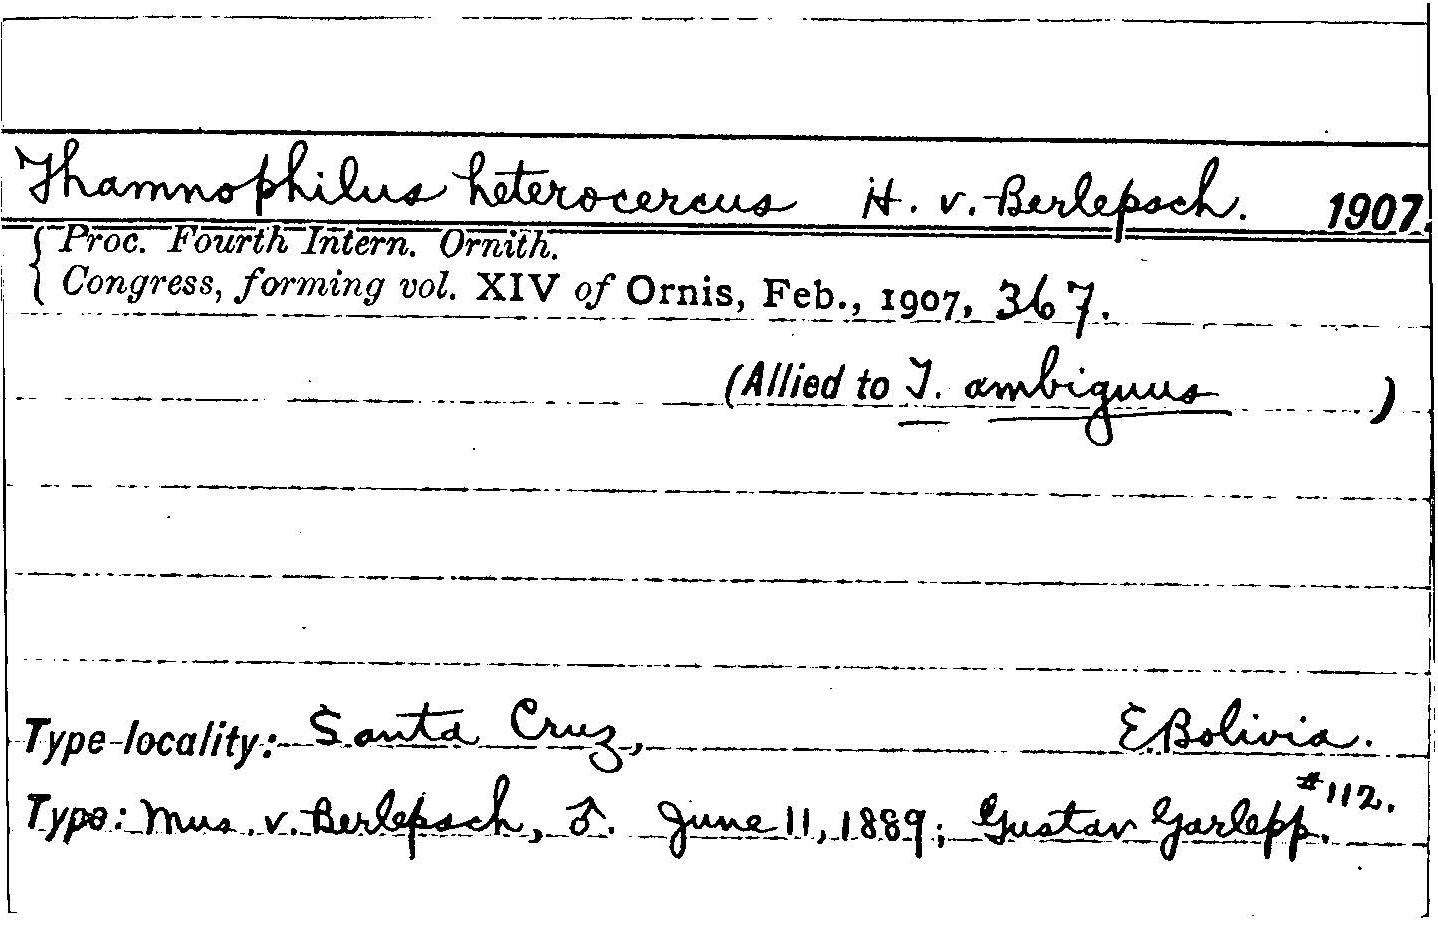 Thamnophilus heterocercus H. v. Berlepsch. 1907.
Proc. Fourth Intern. Ornith.
Congress, forming vol. XIV of Ornis, Feb., 1907, 367.
(Allied to T. ambiguus )
Type-locality: Santa Cruz, E. Bolivia.
Type: Mus. v. Berlepsch, ♂. June 11, 1889; Gustav Garlepp. #112.